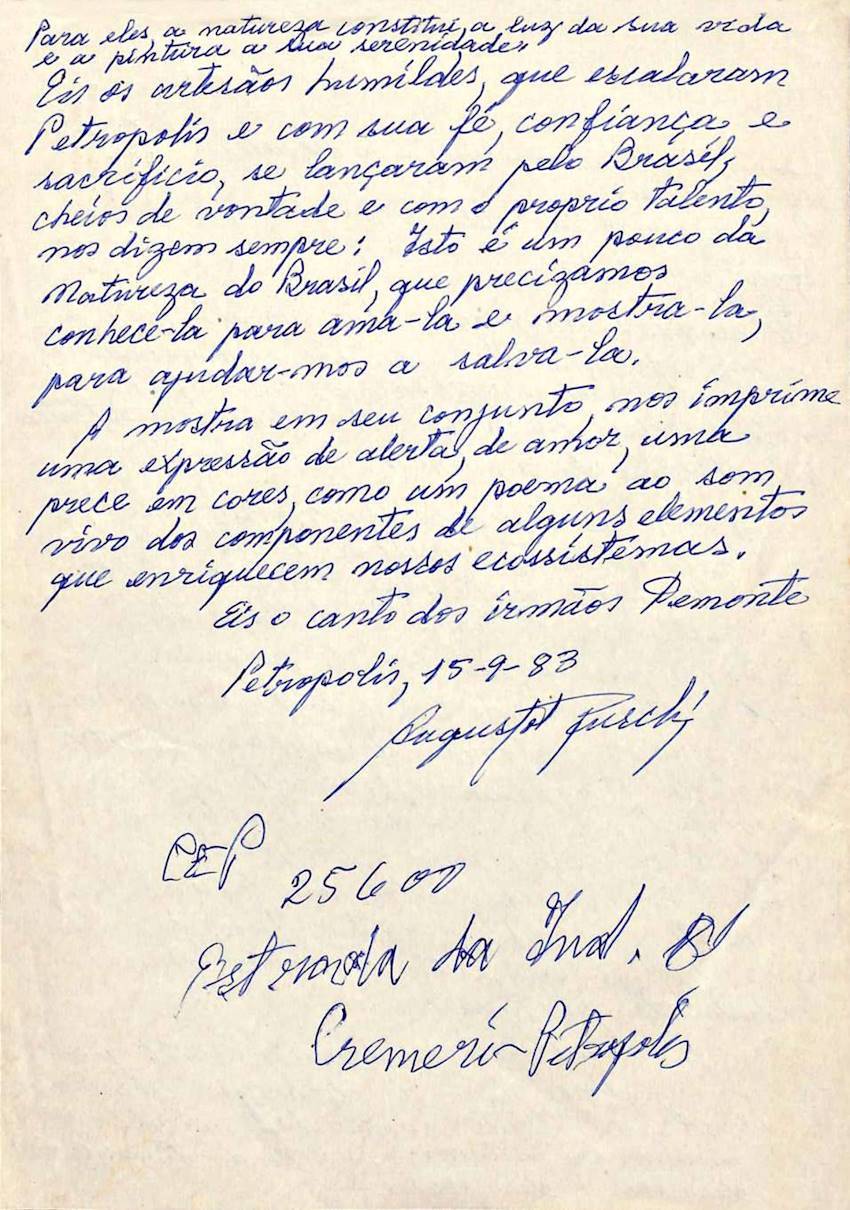 Para eles a natureza constitui, a luz da sua vida
e a pintura a sua serenidade.
Eis os artesãos humildes, que escalaram
Petropolis e com sua fé, confiança e
sacrificio, se lançaram pelo Brasil,
cheios de vontade e com o proprio talento,
nos dizem sempre: Isto é um pouco da
Natureza do Brasil, que precizamos
conhece-la para ama-la e mostra-la,
para ajudar-mos a salva-la.
A mostra em seu conjunto, nos imprime
uma expressão de alerta, de amor, uma
prece em cores, como um poema ao som
vivo dos componentes de alguns elementos
que enriquecem nossos ecossistemas.
Eis o canto dos irmãos Demonte
Petropolis, 15-9-83
Augusto Ruschi
CEP
25600
Estrada da Ind. 81
Cremeri - Petropolis